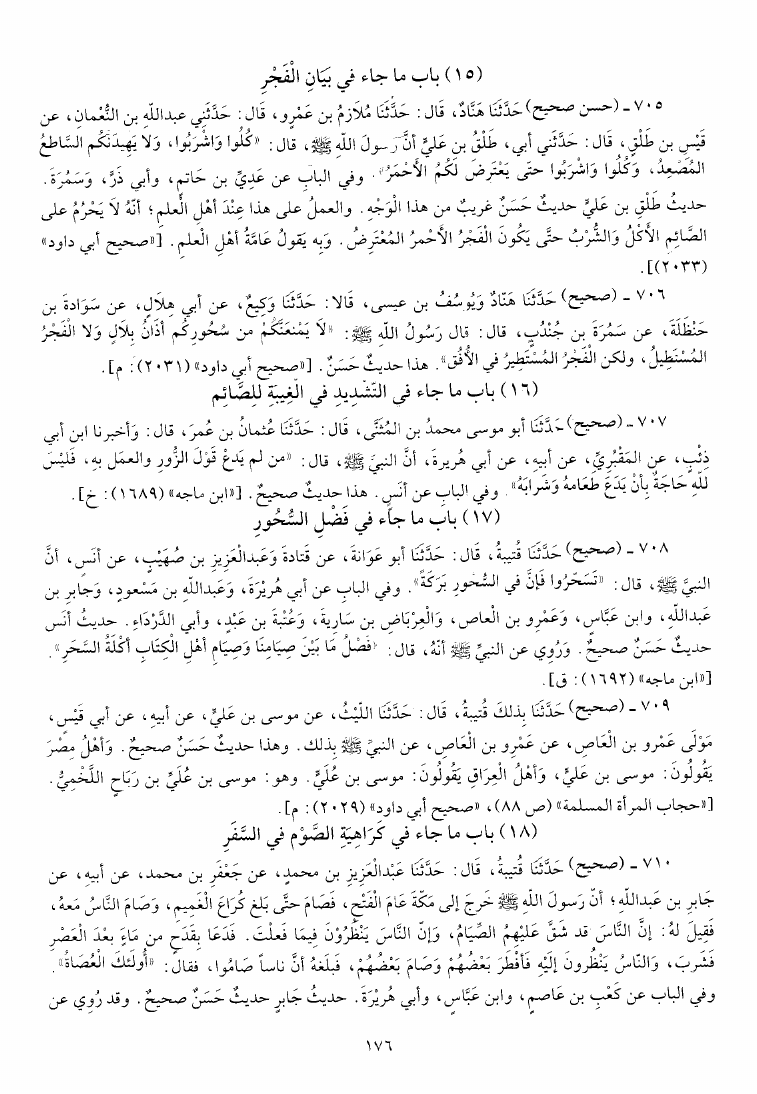 (١٥) باب ما جاء في بَيَانِ الْفَجْرِ
٧٠٥ ـ (حسن صحيح) حَدَّثَنَا هَنَّادٌ، قَال: حَدَّثَنَا مُلَازِمُ بن عَمْرٍو، قَال: حَدَّثَنِي عبداللهِ بن النُّعْمانِ، عن
قَيْسِ بن طَلْقٍ، قَال: حَدَّثَني أبي، طَلْقُ بن عَلِيٍّ أنَّ رَسولَ اللهِ ﷺ، قال: «كُلُوا وَاشْرَبُوا، وَلا يَهِيدَنَّكُم السَّاطعُ
المُصْعِدُ، وَكُلُوا وَاشْرَبُوا حتى يَعْتَرِضَ لَكُمُ الأَحْمَرُ». وفي البابِ عن عَدِيِّ بن حَاتمٍ، وأبي ذَرٍّ، وَسَمُرَةَ.
حديثُ طَلْقِ بن عَلِيٍّ حديثٌ حَسَنٌ غريبٌ من هذا الْوَجْهِ. والعملُ على هذا عِنْدَ أهْلِ العلمِ؛ أنّهُ لَا يَحْرُمُ على
الصَّائمِ الأَكْلُ وَالشُّرْبُ حتَّى يَكُونَ الْفَجْرُ الأَحْمرُ المُعْتَرِضُ. وَبِه يَقولُ عَامَّةُ أهْلِ العلمِ. [«صحيح أبي داود»
(٢٠٣٣)].
٧٠٦ ـ (صحيح) حَدَّثَنَا هَنَّادٌ وَيُوسُفُ بن عيسى، قَالا: حَدَّثَنَا وَكِيعٌ، عن أبي هِلَالٍ، عن سَوَادَةَ بن
حَنْظَلَةَ، عن سَمُرَةَ بن جُنْدُبٍ، قال: قال رَسُولُ اللهِ ﷺ: «لاَ يَمْنَعَنَّكُمْ من سُحُورِكُم أذَانُ بِلَالٍ وَلا الْفَجْرُ
المُسْتَطِيلُ، ولكن الْفَجْرُ المُسْتَطِيرُ في الأُفُقِ». هذا حديثٌ حَسَنٌ. [«صحيح أبي داود» (٢٠٣١): م].
(١٦) باب ما جاء في التَّشْدِيدِ في الْغِيبَةِ لِلصَّائِمِ
٧٠٧ ـ (صحيح) حَدَّثَنَا أبو موسى محمدُ بن المُثَنَّى، قَال: حَدَّثَنَا عُثمانُ بن عُمَرَ، قال: وَأخبرنا ابن أبي
ذِئْبٍ، عن المَقْبُرِيِّ، عن أبِيهِ، عن أبي هُريرةَ، أنَّ النبيَّ ﷺ، قال: «من لم يَدَعْ قَوْلَ الزُّورِ والعمَلَ بهِ، فَلَيْسَ
للهِ حَاجَةٌ بِأَنْ يَدَعَ طَعَامهُ وَشَرَابَهُ». وفي البابِ عن أنَسٍ. هذا حديثٌ صحيحٌ. [«ابن ماجه» (١٦٨٩): خ].
(١٧) باب ما جاء في فَضْلِ السُّحُورِ
٧٠٨ ـ (صحيح) حَدَّثَنَا قُتيبةُ، قَال: حَدَّثَنَا أبو عَوَانةَ، عن قَتادةَ وَعَبدالْعَزِيزِ بن صُهَيْبٍ، عن أنَسٍ، أنَّ
النبيَّ ﷺ، قال: «تَسَحَّرُوا فَإِنَّ في السُّحُورِ بَرَكَةً». وفي البابِ عن أبي هُرَيْرَةَ، وَعَبداللهِ بن مَسْعودٍ، وَجَابِرِ بن
عَبداللهِ، وابن عَبَّاسٍ، وَعَمْرِو بن العاصِ، وَالْعِرْبَاضِ بن سَارِيةَ، وَعُتْبةَ بن عَبْدٍ، وأبي الدَّرْدَاءِ. حديثُ أنَسٍ
حديثٌ حَسَنٌ صحيحٌ. وَرُوِي عن النبيِّ ﷺ أنَّهُ، قال: «فَصْلُ مَا بَيْنَ صِيَامِنَا وَصِيَامِ أهْلِ الْكِتَابِ أكْلَةُ السَّحَرِ».
[«ابن ماجه» (١٦٩٢): ق].
٧٠٩ ـ (صحيح) حَدَّثَنَا بِذلكَ قُتيبةُ، قَال: حَدَّثَنَا اللّيْثُ، عن موسى بن عَلِيٍّ، عن أبِيهِ، عن أبي قَيْسٍ،
مَوْلَى عَمْرِو بن الْعَاصِ، عن عَمْرِو بن الْعَاصِ، عن النبيِّ ﷺ بِذلك. وهذا حديثٌ حَسَنٌ صحيحٌ. وَأهْلُ مِصْرَ
يَقُولُونَ: موسى بن عَلِيٍّ، وَأهْلُ الْعِرَاقِ يَقُولُونَ: موسى بن عُلَيٍّ. وهو: موسى بن عُلَيِّ بن رَبَاحٍ اللَّخْمِيُّ.
[«حجاب المرأة المسلمة» (ص ٨٨)، «صحيح أبي داود» (٢٠٢٩): م].
(١٨) باب ما جاء في كَرَاهِيَةِ الصَّوْمِ في السَّفَرِ
٧١٠ ـ (صحيح) حَدَّثَنَا قُتيبةُ، قَال: حَدَّثَنَا عَبْدُالْعَزِيزِ بن محمدٍ، عن جَعْفَرِ بن محمد، عن أبيهِ، عن
جَابِرِ بن عَبداللهِ؛ أنّ رَسولَ اللهِ ﷺ خَرجَ إلى مَكّةَ عَامَ الْفَتْحِ، فَصَامَ حتَّى بَلغَ كُرَاعَ الْغَمِيمِ، وَصَامَ النَّاسُ مَعهُ،
فَقِيلَ لهُ: إنَّ النَّاسَ قد شَقَّ عَلَيْهِمُ الصِّيَامُ، وَإنّ النَّاسَ يَنْظُرُوْنَ فِيمَا فَعلْتَ. فَدَعَا بِقَدَحٍ من مَاءٍ بَعْدَ الْعَصْرِ
فَشَرِبَ، وَالنّاسُ يَنْظُرونَ إلَيْهِ فَأَفْطَرَ بَعْضُهُمْ وَصَامَ بَعْضُهُمْ، فَبلَغهُ أنَّ ناساً صَامُوا، فقال: «أُولئكَ الْعُصَاةُ».
وفي الباب عن كَعْبِ بن عَاصمٍ، وابن عَبَّاسٍ، وأبي هُرَيْرَةَ. حديثُ جَابرٍ حديثٌ حَسَنٌ صحيحٌ. وقد رُوِي عن
١٧٦